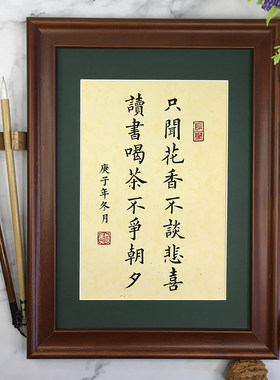 只聞花香不談悲喜
讀書喝茶不爭朝夕
庚子年冬月